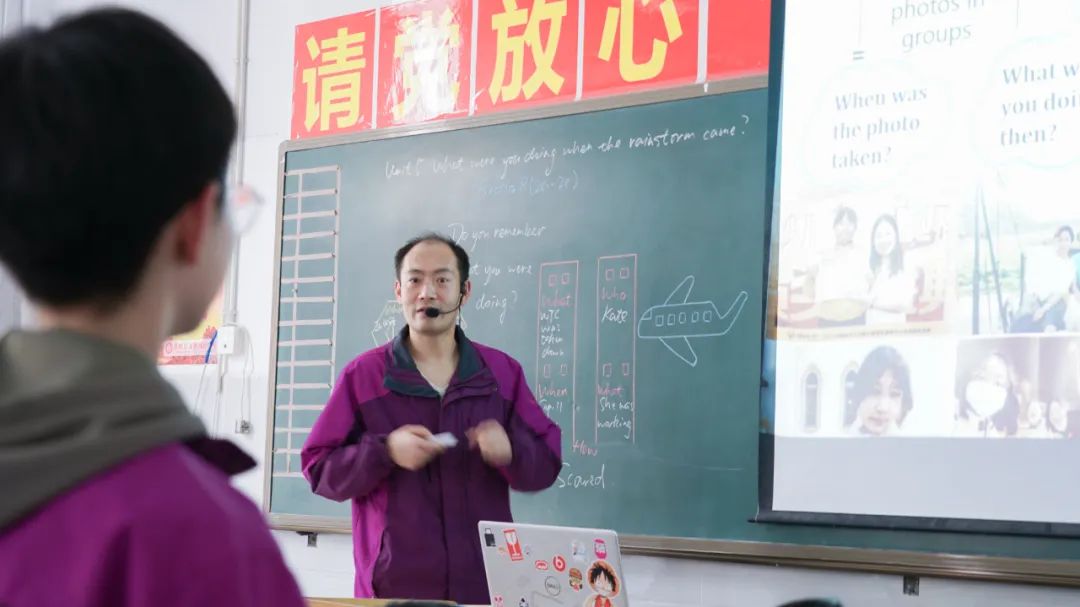 请党放心
photos in
groups
When was
the photo
taken?
What w
you doi
then?
Unit 5 What were you doing when the rainstorm came?
Section B (2a-2e)
Do you remember
at you were
doing?
What
WTC
was
taken
down
When
Sep. 11
Who
Kate
What
She was
working
How
Scared.
DELL